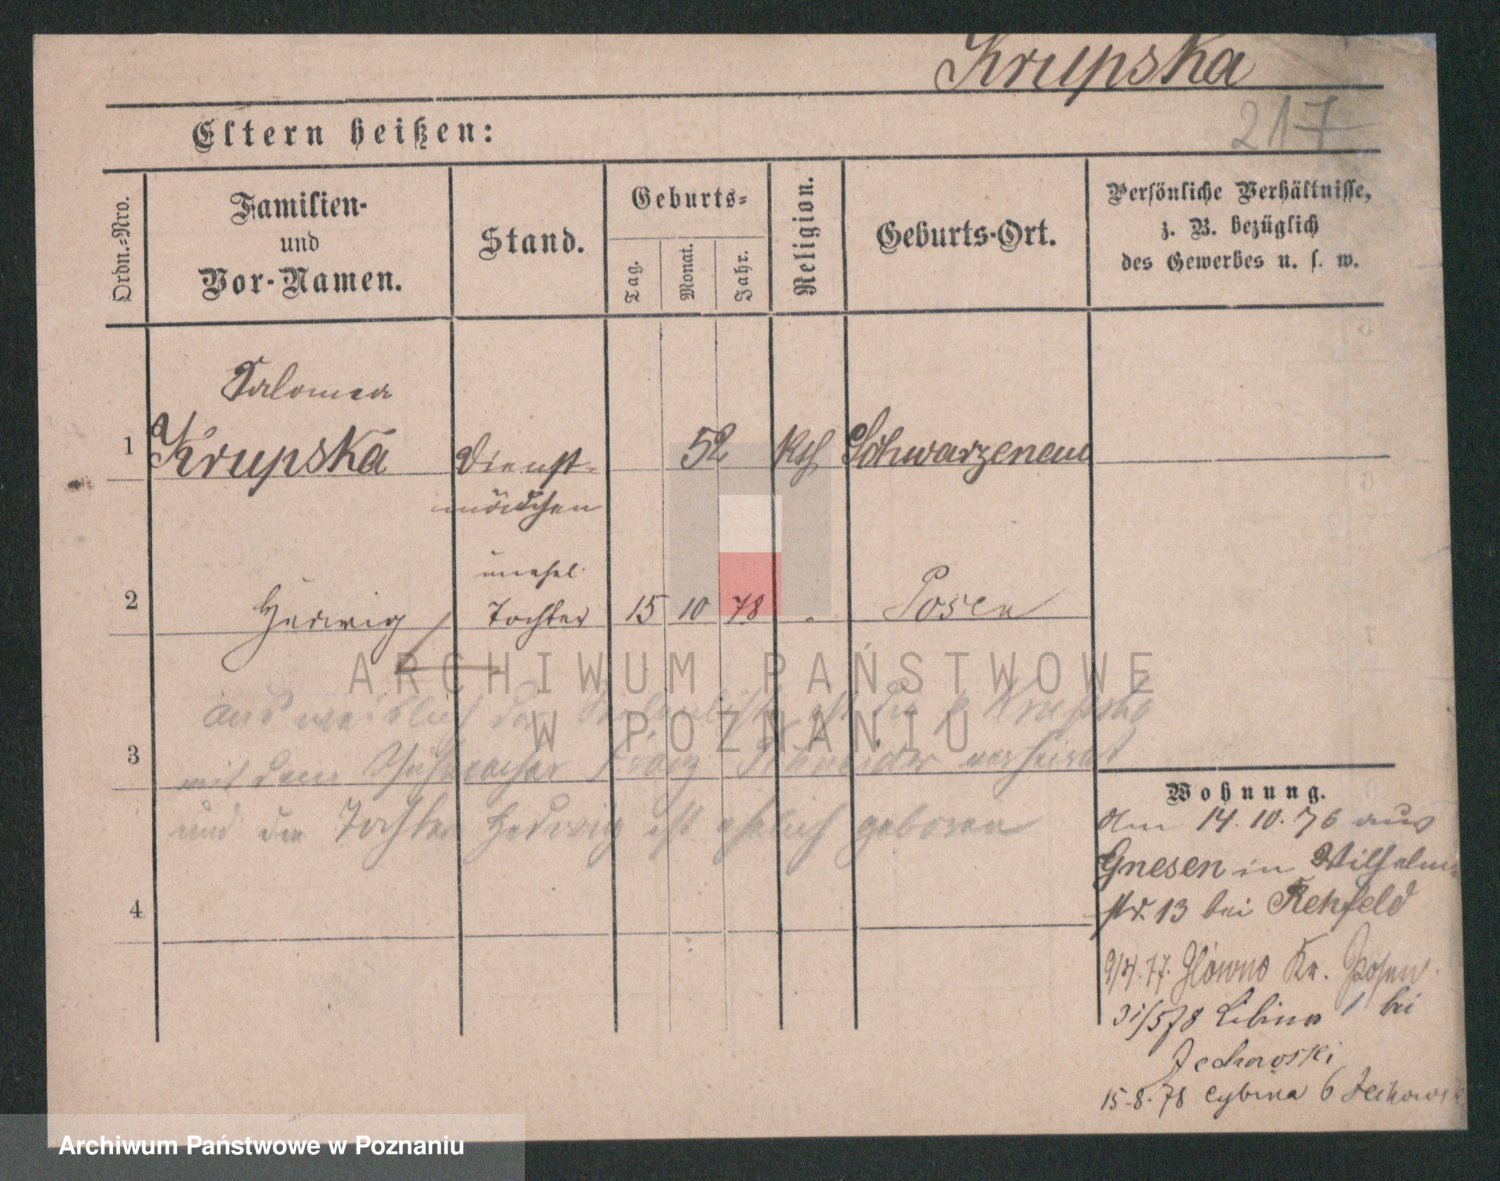 Krupska
217
Eltern heißen:
Ordn.-Nro.
Familien-
und
Vor-Namen.
Stand.
Geburts-
Tag.
Monat.
Jahr.
Religion.
Geburts-Ort.
Persönliche Verhältnisse,
z. B. bezüglich
des Gewerbes u. s. w.
Salomea
1 Krupska Dienst- 52 kth Schwarzenau
mädchen
unehel.
2 Hedwig Tochter 15 10 78 Posen
ARCHIWUM PAŃSTWOWE
W POZNANIU
ausweislich der ist die p Krupska
3 mit dem Schuhmacher Franz Schneider verheirat
und die Tochter Hedwig ist ehelich geboren
4
Wohnung.
Am 14.10.76 aus
Gnesen in Wilhelm-
str. 13 bei Rehfeld
9/4.77. Glowno Kr. Posen.
31/5 78 Cibina 1 bei
Zechowski
15.8.78 Cybina 6 Zechowski
Archiwum Państwowe w Poznaniu